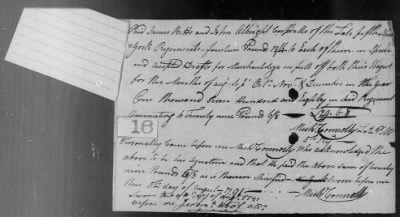 Paid James Potts and John Albright Corporals of the Late fifth New
York Regiment fourteen Pound 13/4 to each of them in Specie
and Drafts for in full of both their Wages
for the Months of Augt Sept Oct. Novr & December in the year
One thousand Seven Hundred and Eighty in said Regiment
Amounting to Twenty nine Pound 6/8 — £29..6..8
Michl Connolly
16
Personally Came before me Michl Connolly who acknowledged the
above to be his Signature and that he paid the above Sum of twenty
nine Pound 6/8 as is therein before me
this 5th day of August 1791
Michl Connolly
Sworn this 5th day of August 1791
before me